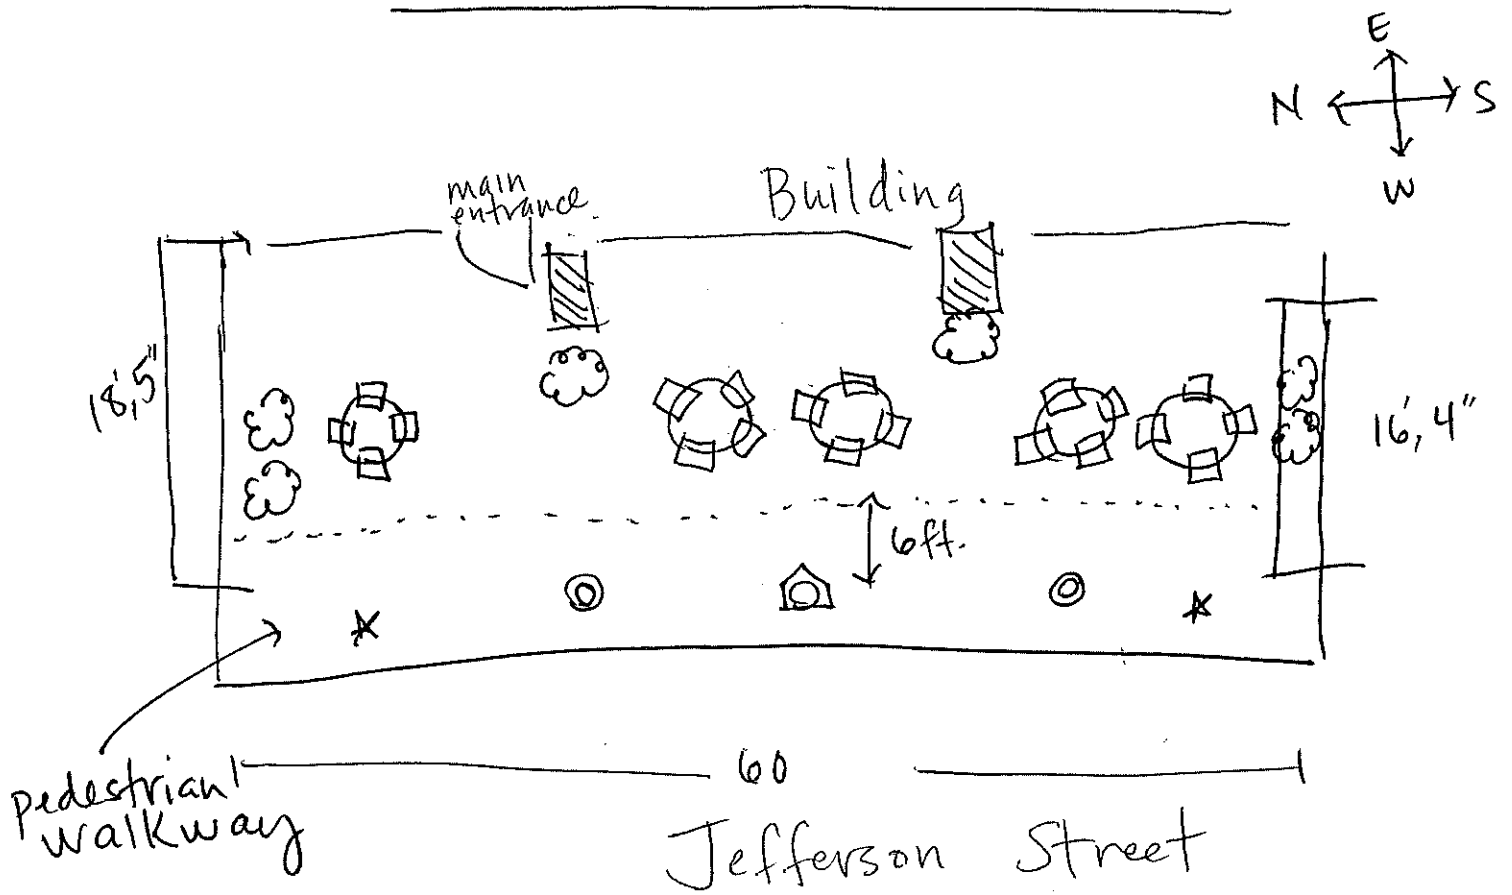 E
N
S
W
main
entrance.
Building
18',5"
16',4"
6ft.
pedestrian
walkway
60
Jefferson Street